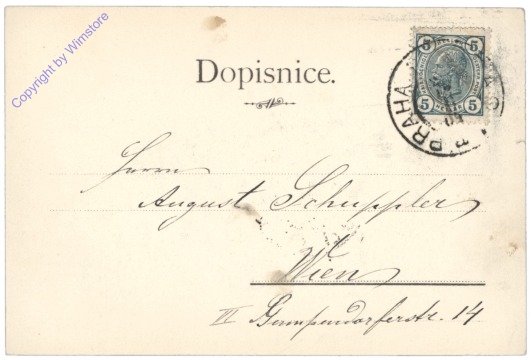 Copyright by Wimstore
Dopisnice.
5 5
5 5
PRAHA
Herrn
August Schuppler
Wien
VI Gumpendorferstr. 14